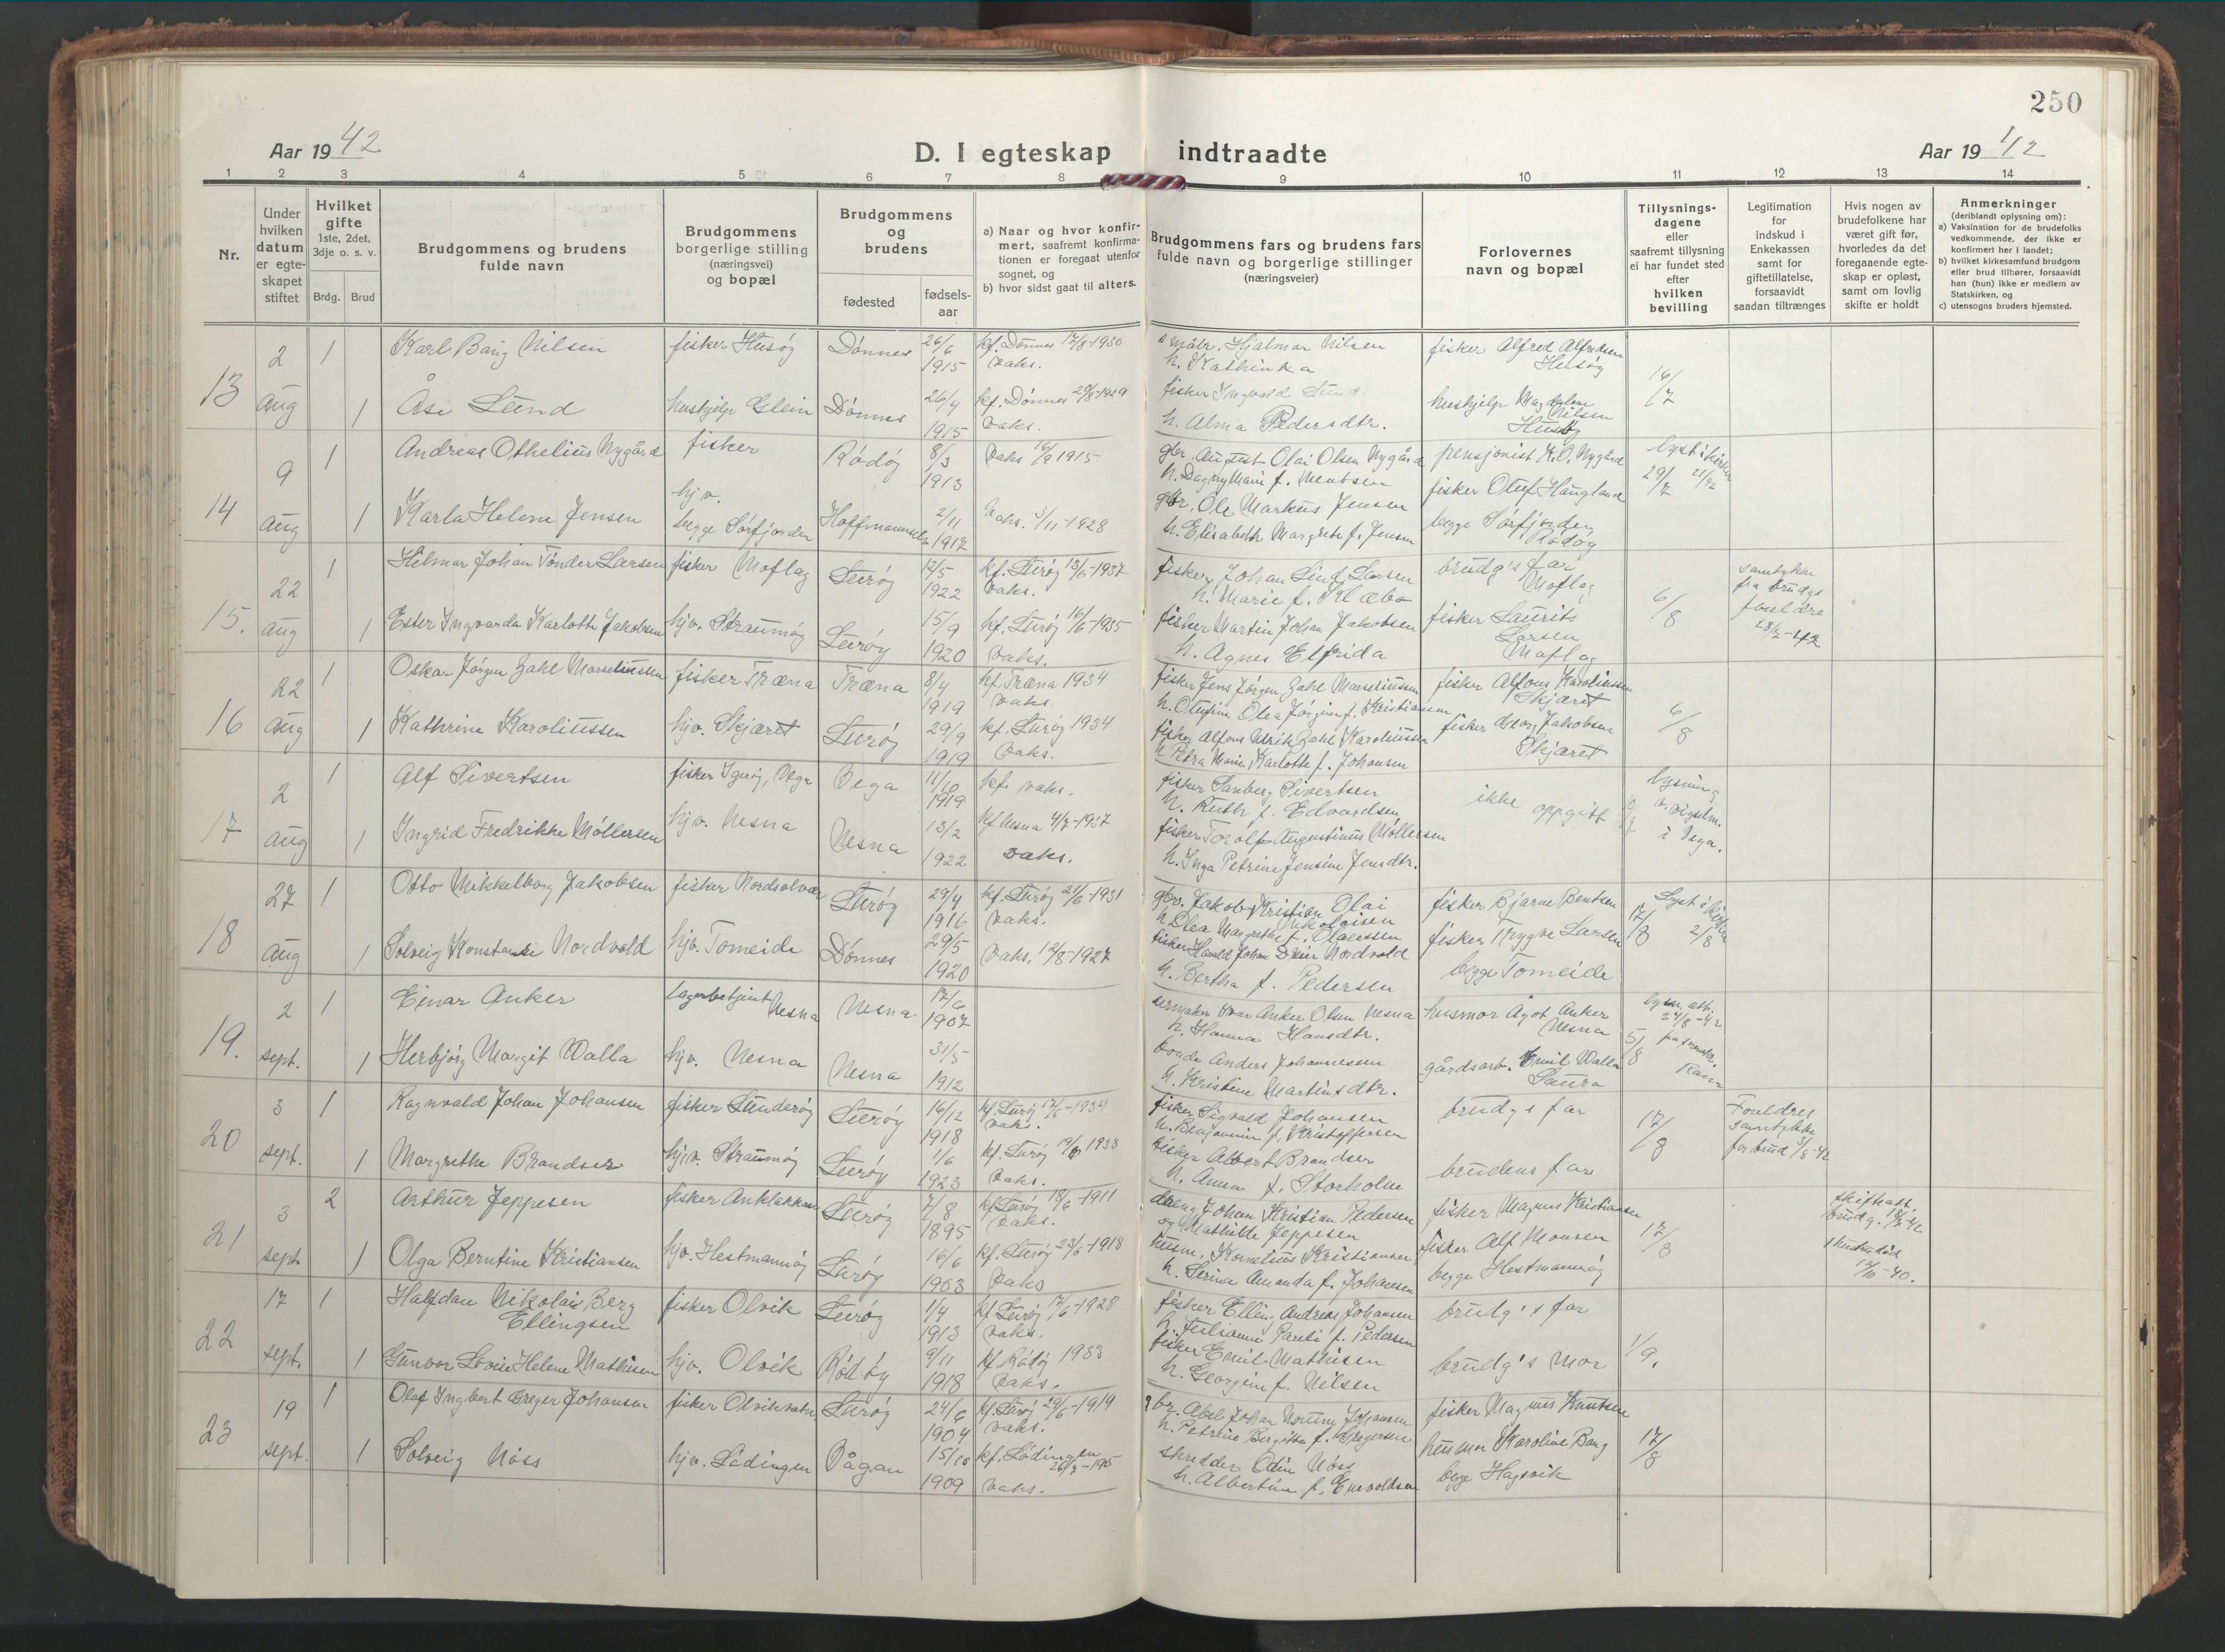 250
Aar 1942
D. I egteskap indtraadte
Aar 1942
1 2 3 4 5 6 7 8 9 10 11 12 13 14
Nr.
Under hvilken datum er egteskapet stiftet
Hvilket gifte 1ste, 2det, 3dje o. s. v.
Brdg. Brud
Brudgommens og brudens fulde navn
Brudgommens borgerlige stilling (næringsvei) og bopæl
Brudgommens og brudens
fødested
fødselsaar
a) Naar og hvor konfirmert, saafremt konfirmationen er foregaat utenfor sognet, og
b) hvor sidst gaat til alters.
Brudgommens fars og brudens fars fulde navn og borgerlige stillinger (næringsveier)
Forlovernes navn og bopæl
Tillysningsdagene eller saafremt tillysning ei har fundet sted efter hvilken bevilling
Legitimation for indskud i Enkekassen samt for giftetillatelse, forsaavidt saadan tiltrænges
Hvis nogen av brudefolkene har været gift før, hvorledes da det foregaaende egteskap er opløst, samt om lovlig skifte er holdt
Anmerkninger
(deriblandt oplysning om):
a) Vaksination for de brudefolks vedkommende, der ikke er konfirmert her i landet;
b) hvilket kirkesamfund brudgom eller brud tilhører, forsaavidt han (hun) ikke er medlem av Statskirken, og
c) utensogns bruders hjemsted.
13 2 aug
1 Karl Bang Nilsen fisker Husøy Dønnes 26/6 1915 kf. Dønnes 17/8-1930 vaks. Hjalmar Nilsen h. Kathinka fisker Alfred Alfredsen Husøy
1 Åse Lund hushjelp Glein Dønnes 26/4 1915 kf. Dønnes 29/8-1929 vaks. fisker Ingvald Lund h. Alma Pedersdtr. hushjelp Magdalene Nilsen Husøy
16/7
14 9 aug
1 Andreas Othelius Nygård fisker Rødøy 8/3 1913 vaks 1915 gbr. August Olai Olsen Nygård h. Dagny Marie f. Bentsen pensjonist K. O. Nygård
1 Karla Helene Jensen hjv. begge Sørfjorden 2/11 1912 vaks. 3/11-1928 gbr. Ole Markus Jensen h. Elisabeth Margrete f. Jensen fisker Oluf Haugland begge Sørfjorden Rødøy
lyst i kirken 29/7
15. 22 aug
1 Hilmar Johan Tønder Larsen fisker Moflag Lurøy 12/5 1922 kf. Lurøy 13/6-1937 vaks. fisker Johan Lind Larsen h. Marie f. Klæbo brudg's far Moflag
1 Ester Ingvarda Karlotte Jakobsen hjv. Straumøy Lurøy 15/9 1920 kf. Lurøy 16/6-1935 vaks. fisker Martin Johan Jakobsen h. Agnes Elfrida fisker Laurits Larsen Moflag
6/8
samtykke fra brudgs foreldre 28/7-42
16 22 aug
1 Oskar Jørgen Zahl Marseliussen fisker Træna Træna 8/4 1919 kf. Træna 1934 vaks. fisker Jens Jørgen Zahl Marseliussen h. Olufine Olea Jørgine f. Kristiansen fisker Alfons Karoliussen Skjæret
1 Kathrine Karoliussen hjv. Skjæret Lurøy 29/9 1919 kf. Lurøy 1934 vaks. fisker Alfons Ulrik Zahl Karoliussen h. Petra Marie Karlotte f. Johansen fisker Georg Jakobsen Skjæret
6/8
17 2 aug
1 Alf Sivertsen fisker Igerøy, Vega Vega 11/10 1919 kf. vaks. fisker Sanberg Sivertsen h. Ruth f. Edvardsen ikke oppgitt
1 Ingrid Fredrikke Møllersen hjv. Nesna Nesna 13/2 1922 kf Nesna 4/7-1937 vaks. fisker Torolf Augustinus Møllersen h. Inga Petrine Jensine Jensdtr.
lysning i Vega.
18 27 aug
1 Otto Mikkelborg Jakobsen fisker Nordsolvær Lurøy 29/4 1916 kf. Lurøy 21/6-1931 vaks. gbr. Jakob Kristian Olai Nikolaisen h. Olea Margrethe f. Olaussen fisker Bjarne Bentsen
1 Solveig Konstanse Nordvold hjv. Tomeide Dønnes 29/5 1920 vaks. 12/8-1927 fisker Harald Johan Dreier Nordvold h. Bertha f. Pedersen fisker Trygve Larsen begge Tomeide
Lyst i kirken 17/8 2/8
19. 2 sept.
1 Einar Anker lagerbetjent Nesna Nesna 17/6 1907 Ivar Anker Olsen Nesna h. Hanna Hansdtr. husmor Ågot Anker Nesna
1 Herbjørg Margit Walla hjv. Nesna Nesna 31/5 1912 bonde Anders Johannesen h. Kristine Martinsdtr. gårdsarb. Emil Walla Saura
lysn. att. 24/8-42 5/8
20 3 sept.
1 Ragnvald Johan Johansen fisker Sunderøy Lurøy 16/12 1918 kf. Lurøy 17/6-1934 vaks. fisker Sigvald Johansen h. Benjamine f. Kristoffersen brudgs far
1 Margrethe Brandser hjv. Straumøy Lurøy 1/6 1923 kf. Lurøy 19/6 1938 vaks. fisker Albert Brandser h. Anna f. Storholm brudens far
17/8
Foreldres samtykke for brud 3/8-42
21 3 sept.
2 Arthur Jeppesen fisker Anklakken Lurøy 7/8 1895 kf Lurøy 18/6-1911 vaks. dreng Johan Kristian Pedersen og Mathilde Jeppesen fisker Magnus Kristiansen
1 Olga Berntine Kristiansen hjv. Hestmannøy Lurøy 16/6 1903 kf. Lurøy 23/6-1918 vaks husm. Kornelius Kristiansen h. Serine Amanda f. Johansen fisker Alf Monsen begge Hestmannøy
17/8
skifteatt. brudg. 18/8-42
22 17 sept.
1 Halfdan Nikolai Berg Ellingsen fisker Olvik Lurøy 1/4 1913 kf Lurøy 17/6-1928 vaks. fisker Elling Andreas Johansen h. Julianne Pareli f. Pedersen brudg's far
1 Gunvor Lovise Helene Mathisen hjv. Olvik Rødøy 9/11 1918 kf Rødøy 1933 vaks. fisker Emil Mathisen h. Georgine f. Nilsen brudg's mor
1/9.
23 19 sept.
1 Olaf Ingbert Greger Johansen fisker Olvikvatn Lurøy 24/6 1904 kf. Lurøy 29/6-1919 vaks. gbr. Abel Johan Norum Johansen h. Petrine Bergitte f. Gregersen fisker Magnus Knutsen
1 Solveig Nøss hjv. Lødingen Vågan 15/10 1909 kf. Lødingen vaks. skredder Odin Nøss h. Albertine f. Enevoldsen husmor Karoline Bang begge Hagsvik
17/8